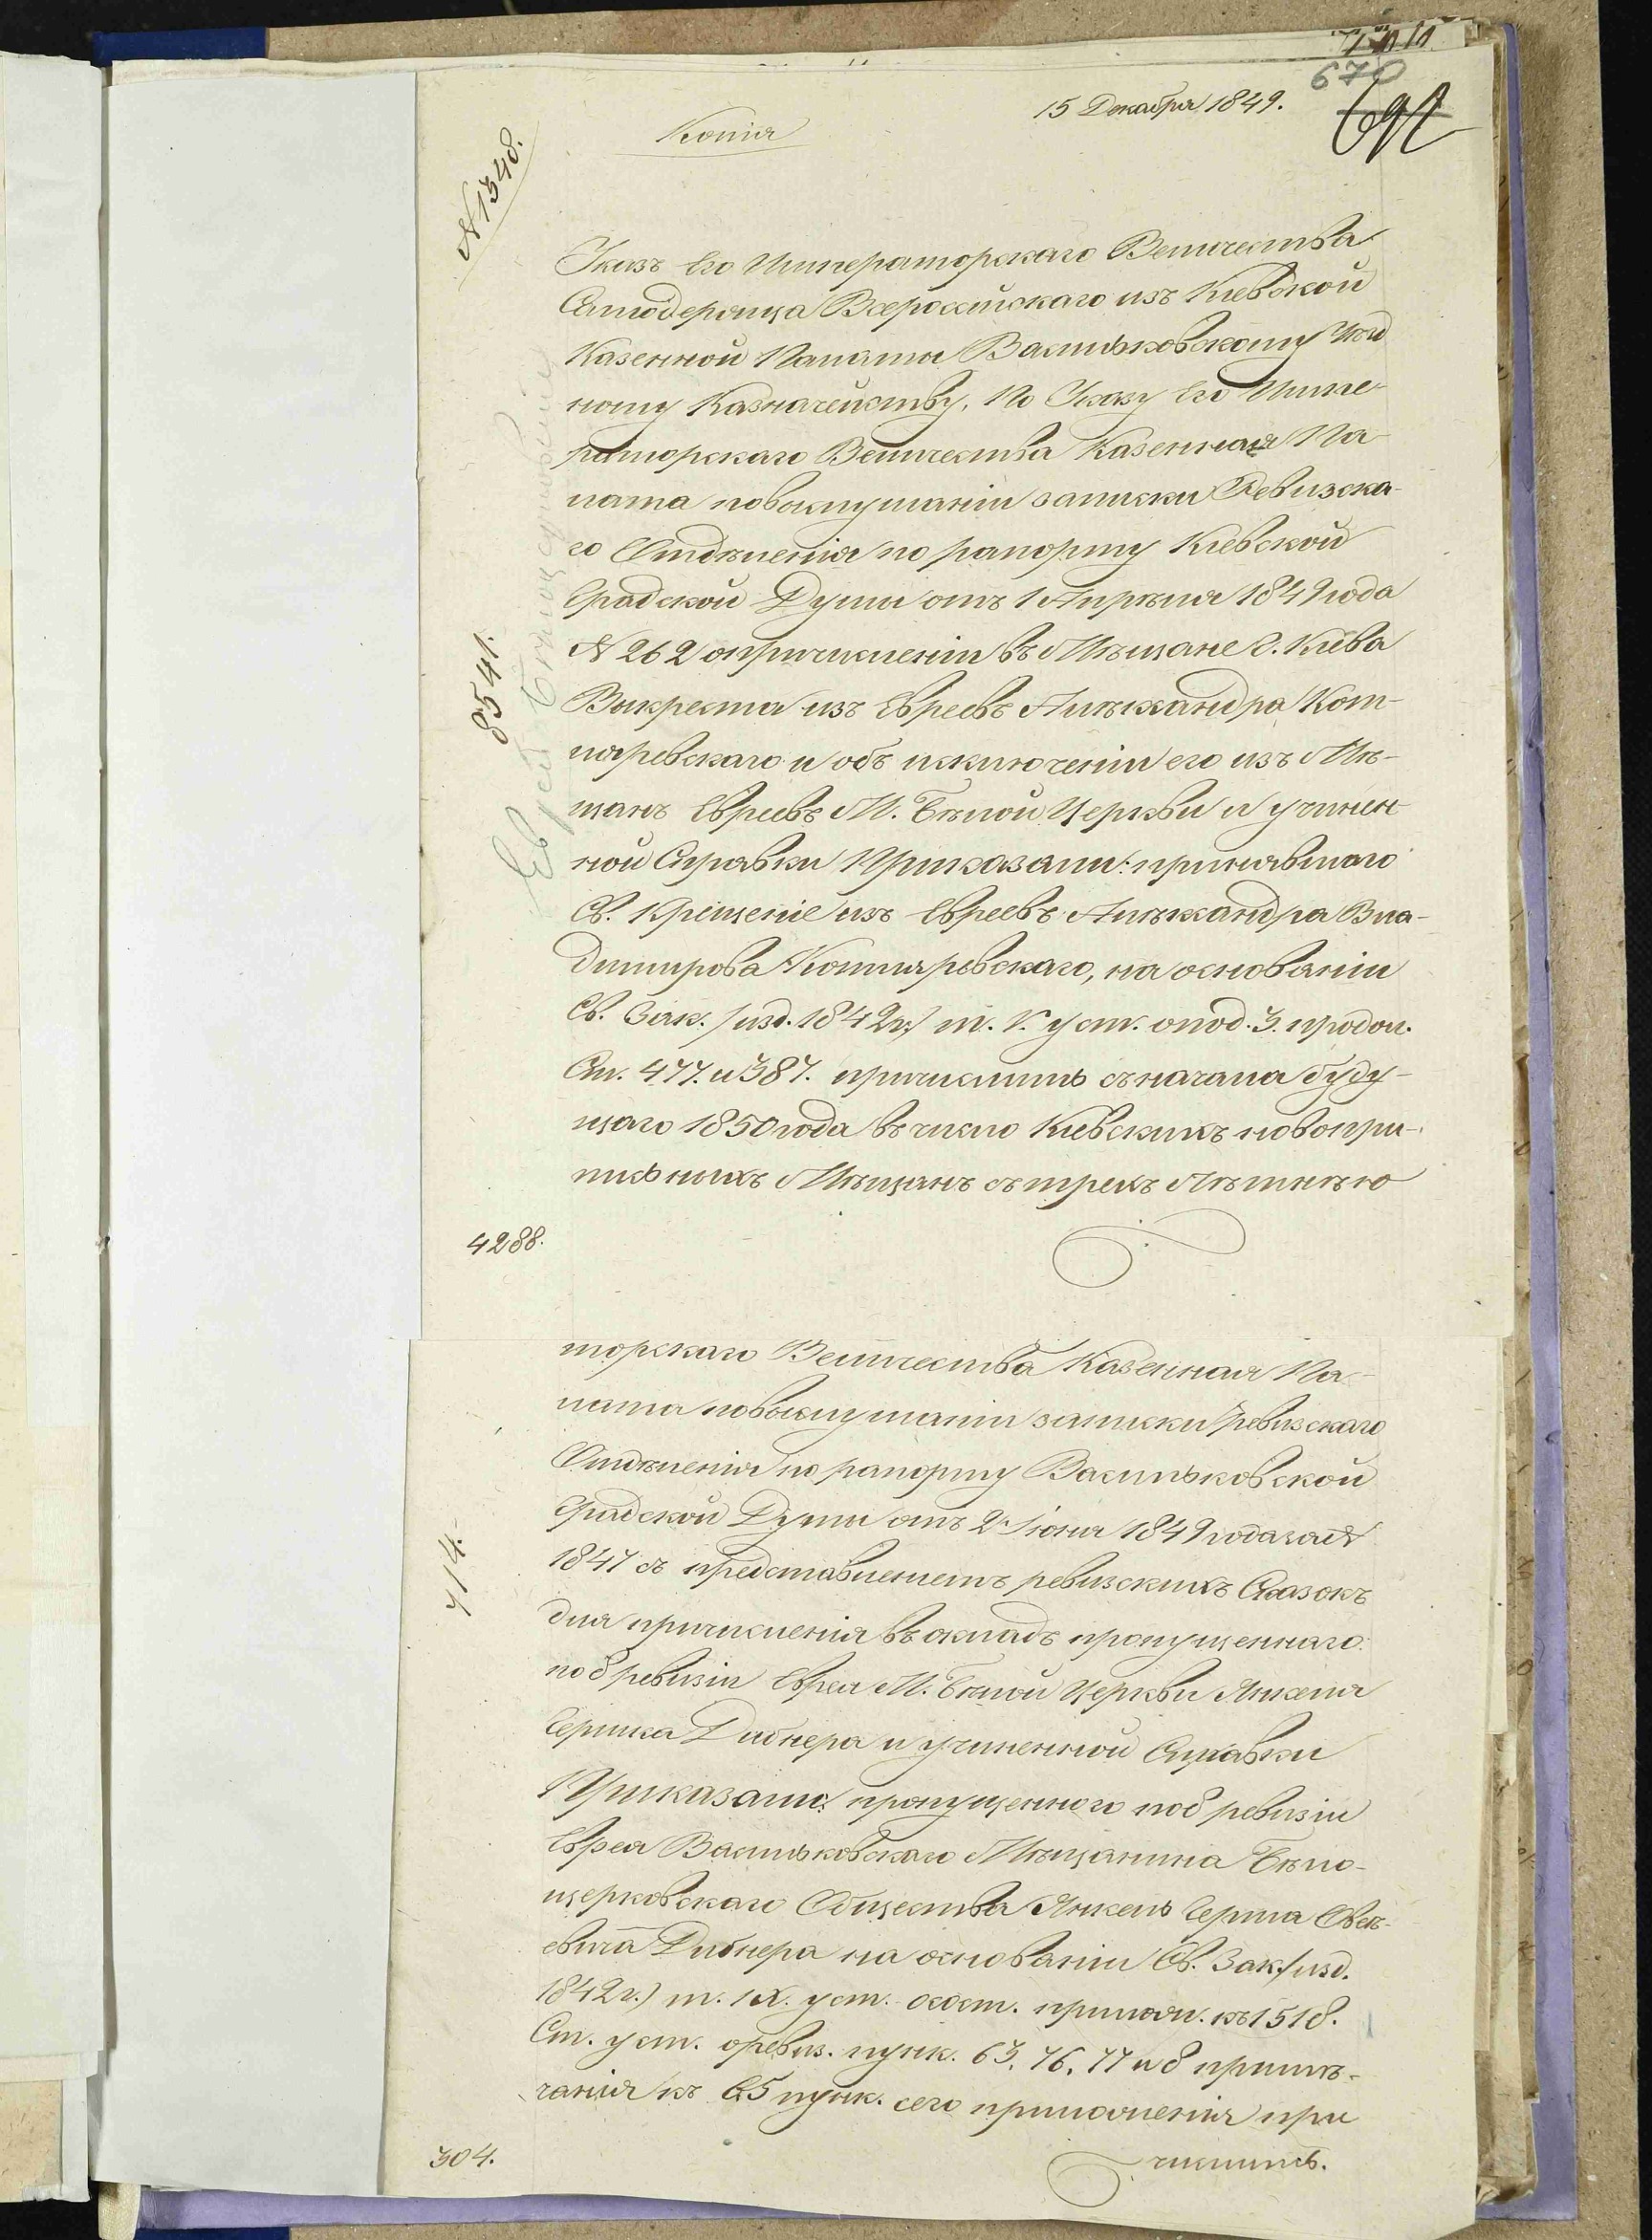 670
15 Декабря 1849.
Копія
№ 1348.
Указъ Его Императорскаго Величества
Самодержца Всероссійскаго изъ Кіевской
Казенной Палаты Васильковскому Уѣзд
ному Казначейству. По Указу Его Импе-
раторскаго Величества Казенная Па-
лата по выслушаніи записки Ревизска-
го Отдѣленія по рапорту Кіевской
Градской Думы отъ 1 Апрѣля 1849 года
№ 262 о причисленіи въ Мѣщане г. Кіева
Выкреста изъ Евреевъ Алѣксандра Кот-
ляревскаго и объ исключеніи его изъ Мѣ-
щанъ Евреевъ М. Бѣлой Церкви и учинен
ной Справки Приказали: принявшаго
Св. Крещеніе изъ Евреевъ Алѣксандра Вла-
димирова Котляревскаго, на основаніи
Св. Зак. /изд. 1842 г./ т. V. уст. о под. 3. продол.
Ст. 477. и 387. причислить съ начала буду-
щаго 1850 года въ число Кіевскихъ новопри-
писныхъ Мѣщанъ съ трехъ лѣтнею
8541.
4288.
торскаго Величества Казенная Па-
лата по выслушаніи записки ревизскаго
Отдѣленія по рапорту Васильковской
Градской Думы отъ 2 Іюня 1849 года за №
1847 съ представленіемъ ревизскихъ Сказокъ
для причисленія въ окладъ пропущеннаго
по 8 ревизіи Еврея М. Бѣлой Церкви Янкеля
Гершка Дибнера и учиненной Справки
Приказали: пропущенного по 8 ревизіи
Еврея Васильковскаго Мѣщанина Бѣло-
церковскаго Общества Янкель Герша Овсѣ-
евича Дибнера на основаніи Св. Зак. /изд.
1842 г./ т. IX. уст. о сост. прилож. къ 1518.
Ст. уст. о ревиз. пунк. 63, 76, 77 и 8 примѣ-
чанія къ 25 пунк. сего приложенія при
числить.
714.
304.